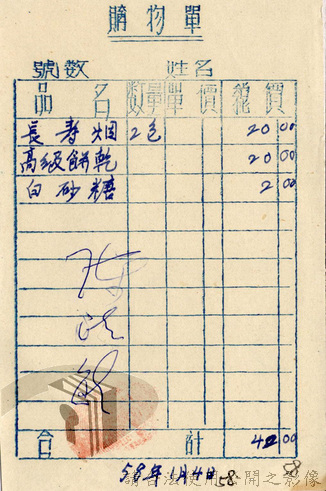 購物單
號數 姓名
品名 數量 單價 總價
長春烟 2包 20 00
高級餅乾 20 00
白砂糖 2 00
合計 42 00
58年1月4日
58